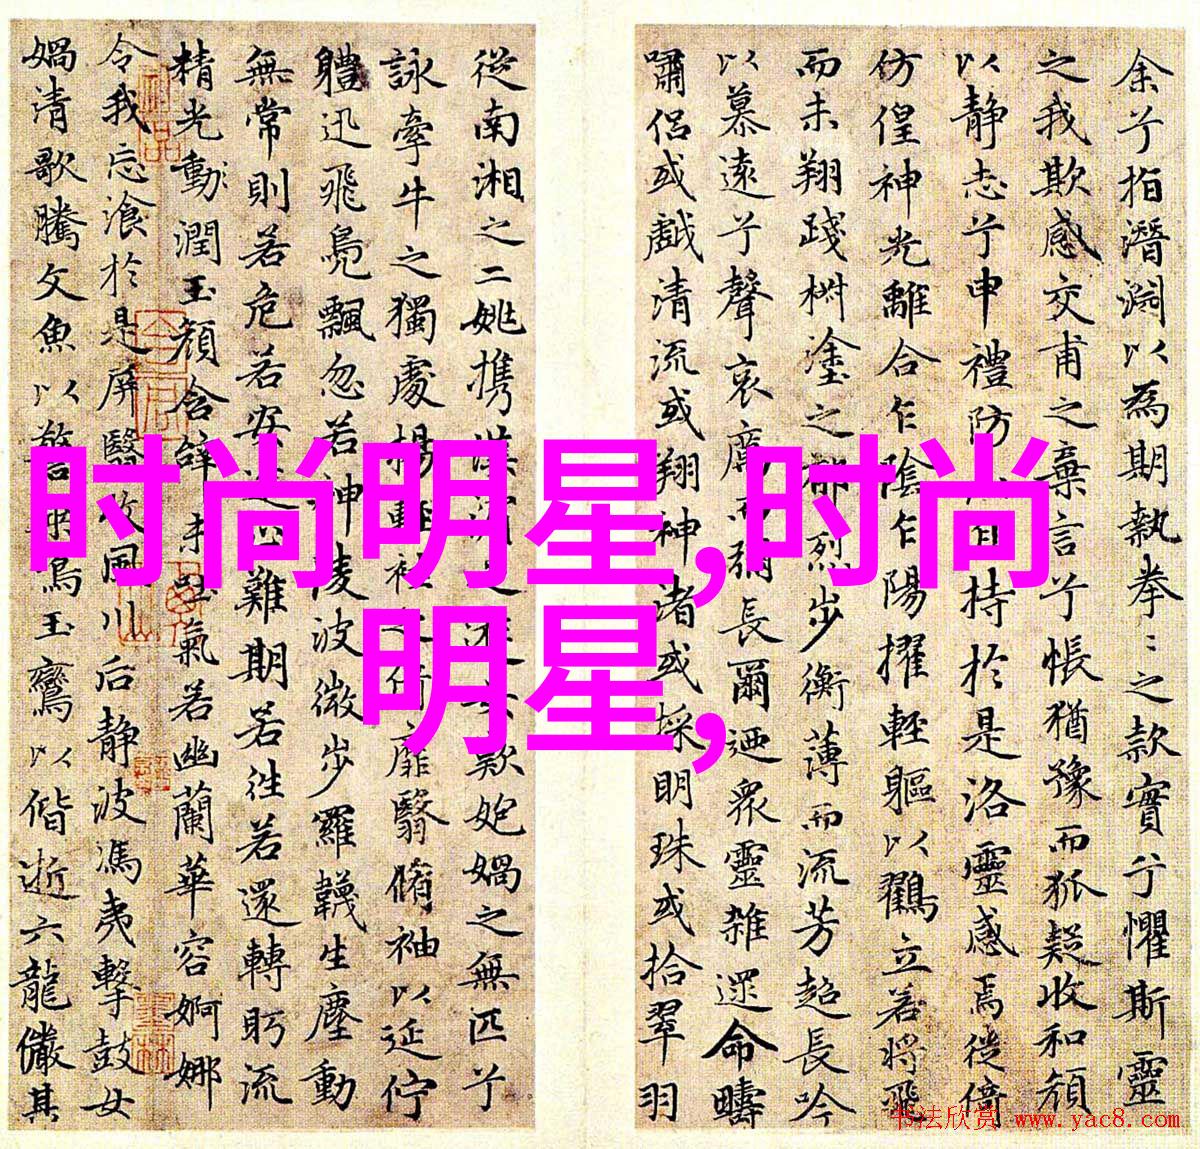 时尚明星,时尚
明星,
余兮指潛淵以為期執拳〻之款實兮懼斯靈
之我欺感交甫之棄言兮悵猶豫而狐疑收和顏
以静志兮申禮防以自持於是洛靈感焉徙倚
仿偟神光離合乍陰乍陽擢輕軀以鶴立若將飛
而未翔踐椒塗之郁烈步衡薄而流芳超長吟
以慕遠兮聲哀厲而彌長爾迺衆靈雜遝命疇
嘯侣或戲清流或翔神渚或採明珠或拾翠羽
從南湘之二姚携漢濱之游女歎匏媧之無匹兮
詠牽牛之獨處揚輕袿之猗靡翳脩袖以延佇
體迅飛鳧飄忽若神陵波微步羅韈生塵動
無常則若危若安進止難期若往若還轉眄流
精光動潤玉顏含辭未吐氣若幽蘭華容婀娜
令我忘飡於是屏翳收風川后静波馮夷擊鼓女
媧清歌騰文魚以警乘鳴玉鸞以偕逝六龍儼其
书法欣赏 www.yac8.com